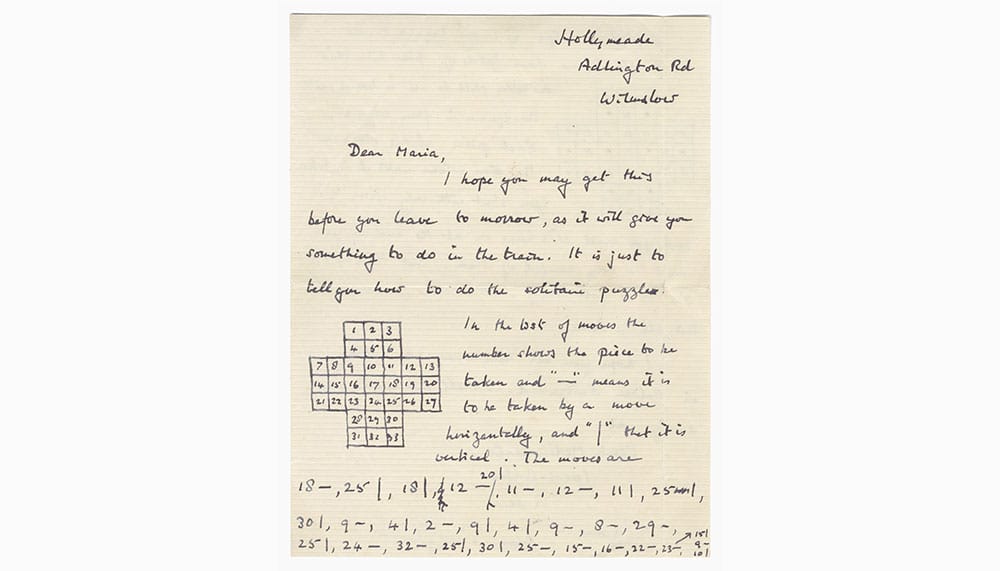 Hollymeade
Adlington Rd
Wilmslow
Dear Maria,
I hope you may get this
before you leave to morrow, as it will give you
something to do in the train. It is just to
tell you how to do the solitaire puzzle.
1 2 3
4 5 6
7 8 9 10 11 12 13
14 15 16 17 18 19 20
21 22 23 24 25 26 27
28 29 30
31 32 33
In the list of moves the
number shows the piece to be
taken and "—" means it is
to be taken by a move
horizontally, and "|" that it is
vertical. The moves are
20|
18–, 25|, 18|, 12–, 11–, 12–, 11|, 25|,
30|, 9–, 4|, 2–, 9|, 4|, 9–, 8–, 29–,
25|, 24–, 32–, 25|, 30|, 25–, 15–, 16–, 22–, 23–, 15|
9–
10|